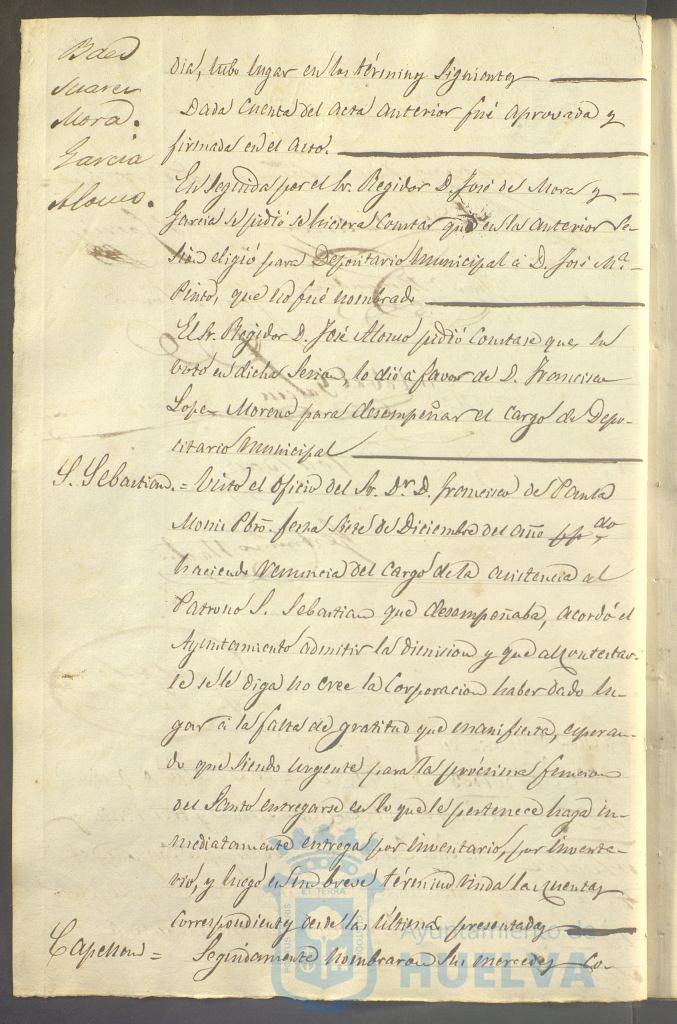 Suarez
Mora.
Garcia
Alonso.
dia, tubo lugar en los términos siguientes
Dada cuenta del acta anterior fué aprovada y
firmada en el acto.
En seguida por el Sr. Regidor D. José de Mora y
Garcia se pidió se hiciera constar que en la anterior se-
sion eligió para Depositario Municipal á D. José Mª
Pinto, que no fué nombrado
El Sr. Regidor D. José Alonso pidió constase que su
voto en dicha sesion, lo dió á favor de D. Francisco
Lopez Moreno para desempeñar el cargo de Depo-
citario Municipal
S. Sebastian. = Visto el oficio del Sr. Dr. D. Francisco de Paula
Pbro. fecha siete de Diciembre del año ppdo
haciendo renuncia del cargo de la asistencia al
Patrono S. Sebastian que desempeñaba, acordó el
Ayuntamiento admitir la dimision y que al contestar-
le se le diga no cree la Corporacion haber dado lu-
gar á la falta de gratitud que manifiesta, esperan-
do que siendo urgente para la procsima funcion
del Santo entregarse en lo que le pertenece haga in-
mediatamente entrega por inventario, por inventa-
rio, y luego en un breve término rinda las cuentas
correspondientes desde las últimas presentadas
Capellan = Seguidamente nombraron sus mercedes Co-
PORTUS MARIS
ET TERRAE
CUSTODIA
Ayuntamiento de
HUELVA